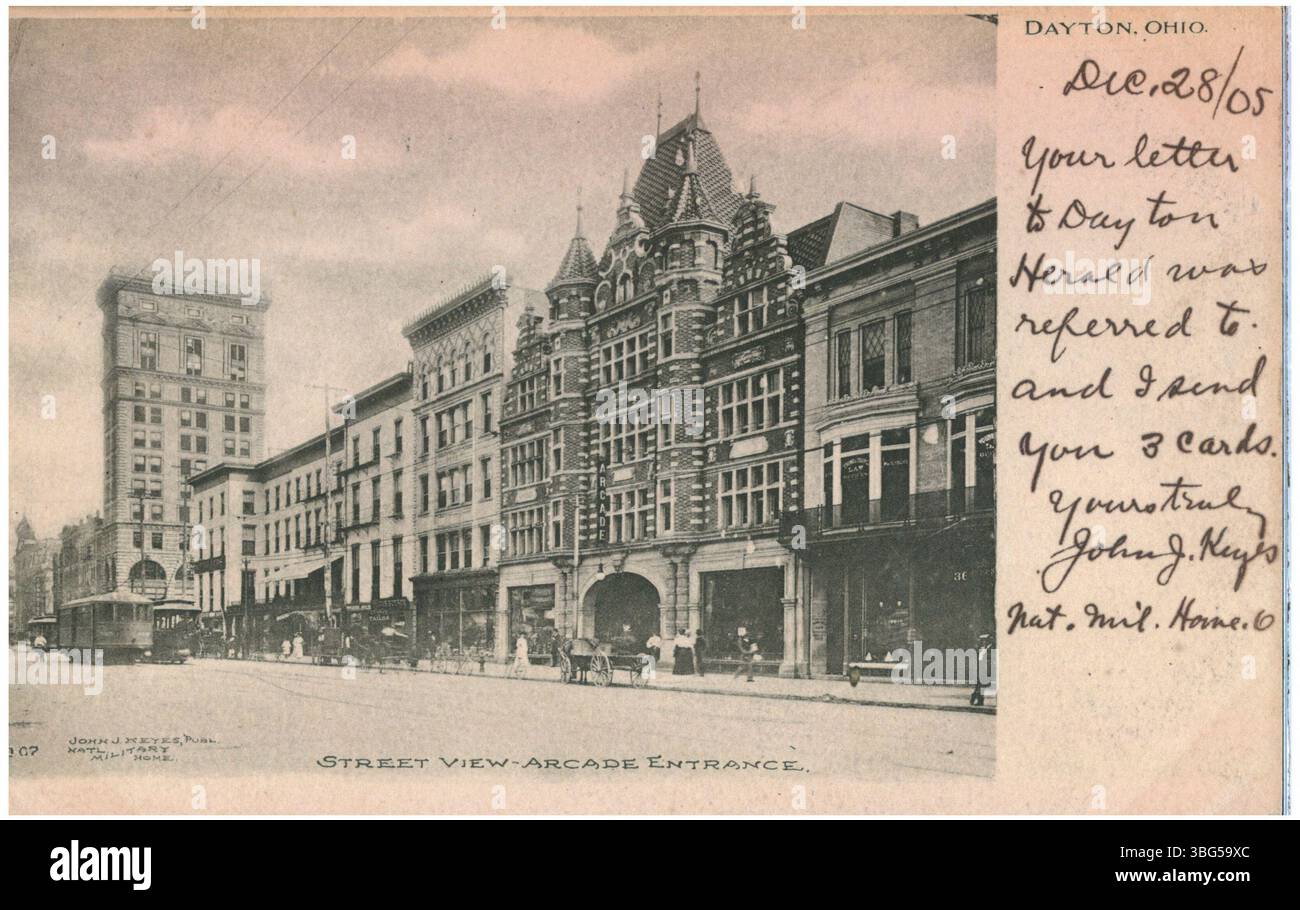 DAYTON, OHIO.
Dec. 28/05
Your letter
to Dayton
Herald was
referred to.
and I send
you 3 cards.
Yours truly
John J. Keyes
Nat. Mil. Home. O
ARCADE
LAW
TAILOR
36
207
JOHN J. KEYES, PUBL.
NATL MILITARY
HOME.
STREET VIEW-ARCADE ENTRANCE.
alamy
Image ID: 3BG59XC
www.alamy.com